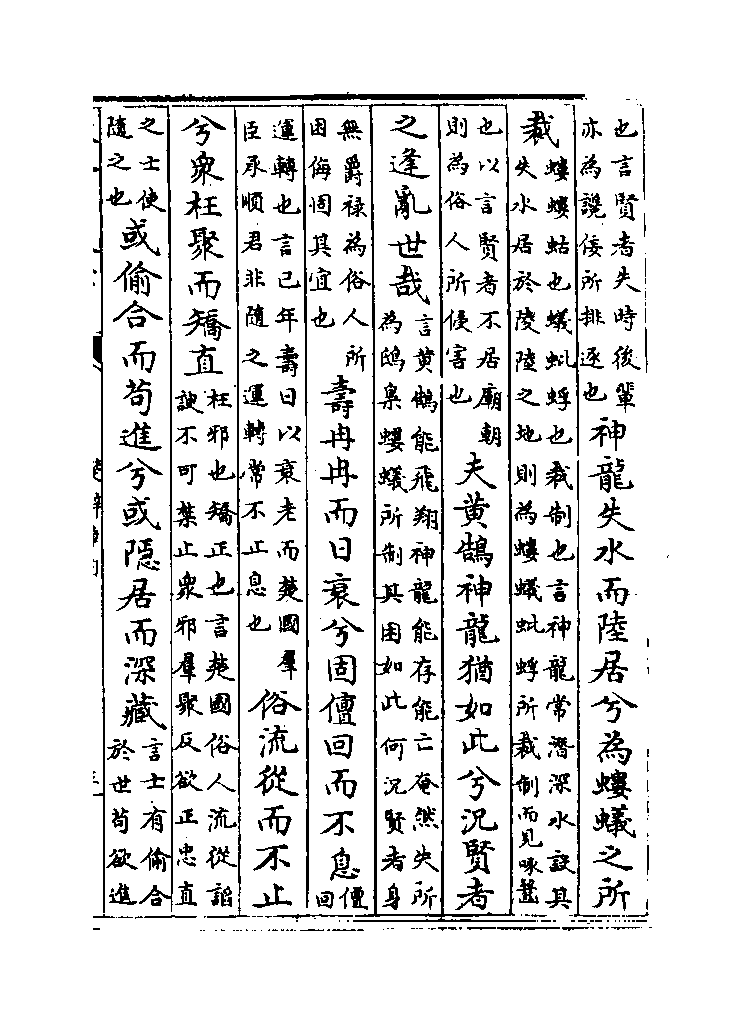 也言賢者失時後輩亦為讒佞所排逐也神龍失水而陸居兮為螻蟻之所
裁螻螻蛄也蟻蚍蜉也裁制也言神龍常潛深水設其失水居於陵陸之地則為螻蟻蚍蜉所裁制而見啄齧
也以言賢者不居廟朝則為俗人所侵害也夫黄鵠神龍猶如此兮況賢者
之逢亂世哉言黄鶴能飛翔神龍能存能亡奄然失所為鴟梟螻蟻所制其困如此何況賢者身
無爵禄為俗人所困侮固其宜也壽冉冉而日衰兮固儃回而不息儃回
運轉也言己年壽日以衰老而楚國羣臣承順君非隨之運轉常不止息也俗流從而不止
兮衆枉聚而矯直枉邪也矯正也言楚國俗人流從諂諛不可禁止衆邪羣聚反欲正忠直
之士使隨之也或偷合而苟進兮或隱居而深藏言士有偷合於世苟欲進